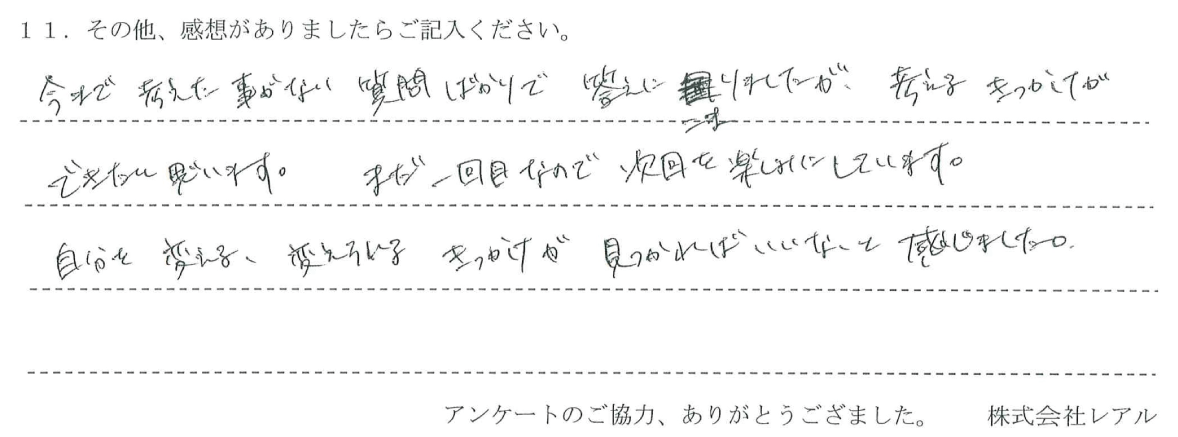 １１．その他、感想がありましたらご記入ください。
今まで考えた事がない質問ばかりで答えに困りましたが、考えるきっかけが
こま
できたと思います。 まだ一回目なので次回を楽しみにしています。
自分を変える、変えられるきっかけが見つかればいいなぁと感じました。
アンケートのご協力、ありがとうござました。 株式会社レアル